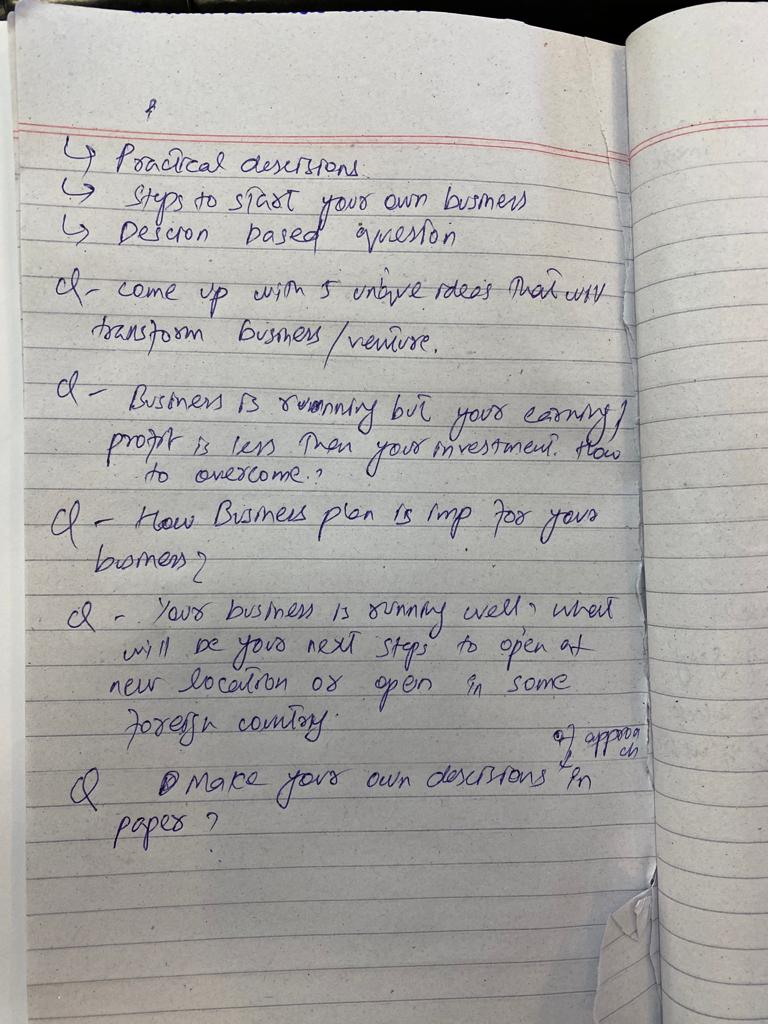 ↳ Practical descisions
↳ Steps to start your own business
↳ Descion based question
Q - Come up with 5 unique ideas that will
transform business/venture.
Q - Business is running but your earning/
profit is less then your investment. How
to overcome.?
Q - How Business plan is imp for your
business?
Q - Your business is running well, what
will be your next steps to open at
new location or open in some
foreign country.
of approach
Q Make your own descisions in
paper?